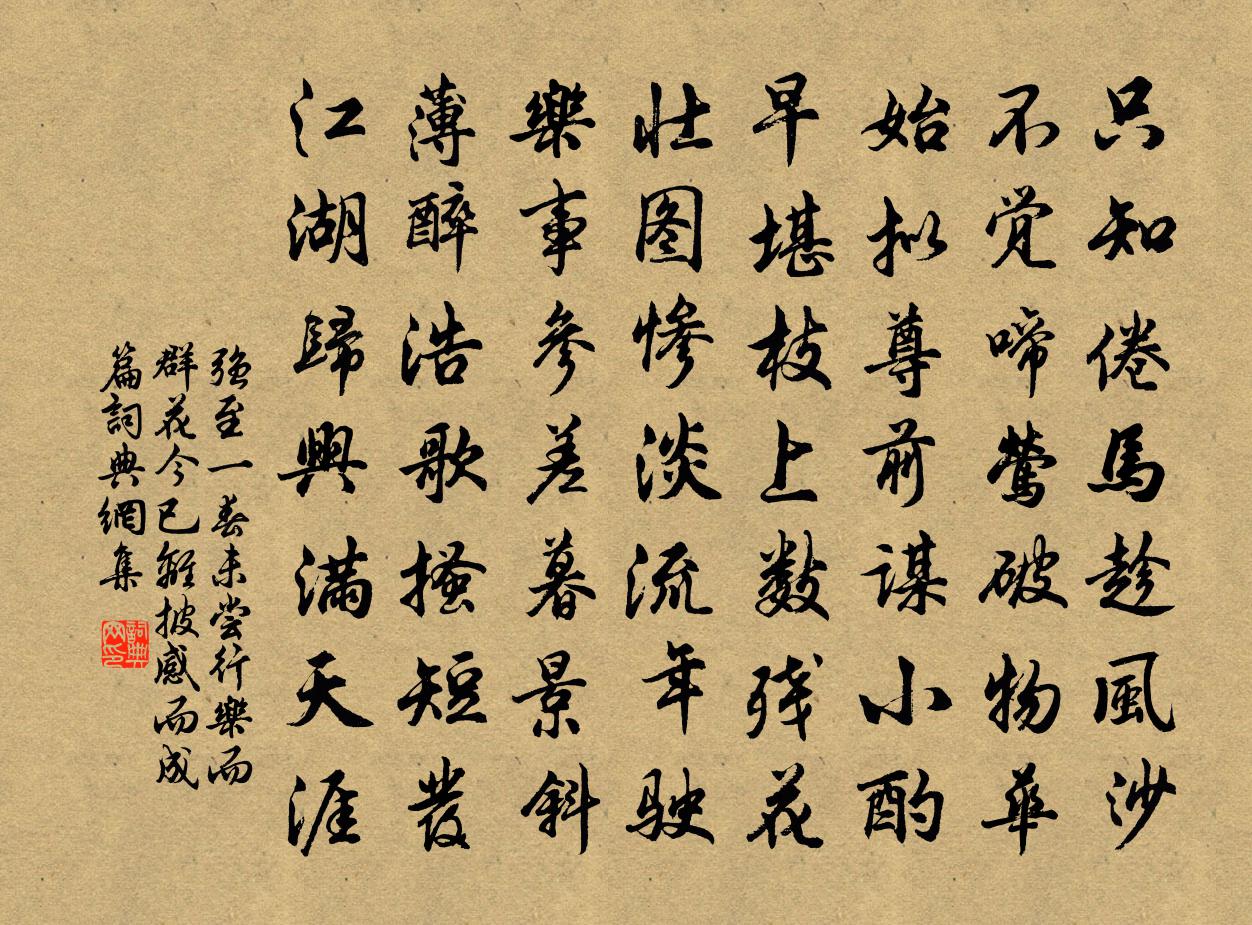 只知倦馬趁風沙
不觉啼鶯破物華
始拟尊前謀小酌
早堪枝上數残花
壮图惨淡流年駛
樂事參差暮景斜
薄醉浩歌搔短發
江湖歸興满天涯
强至一春未尝行樂而
群花今已離披感而成
篇詞典網集
詞典网印